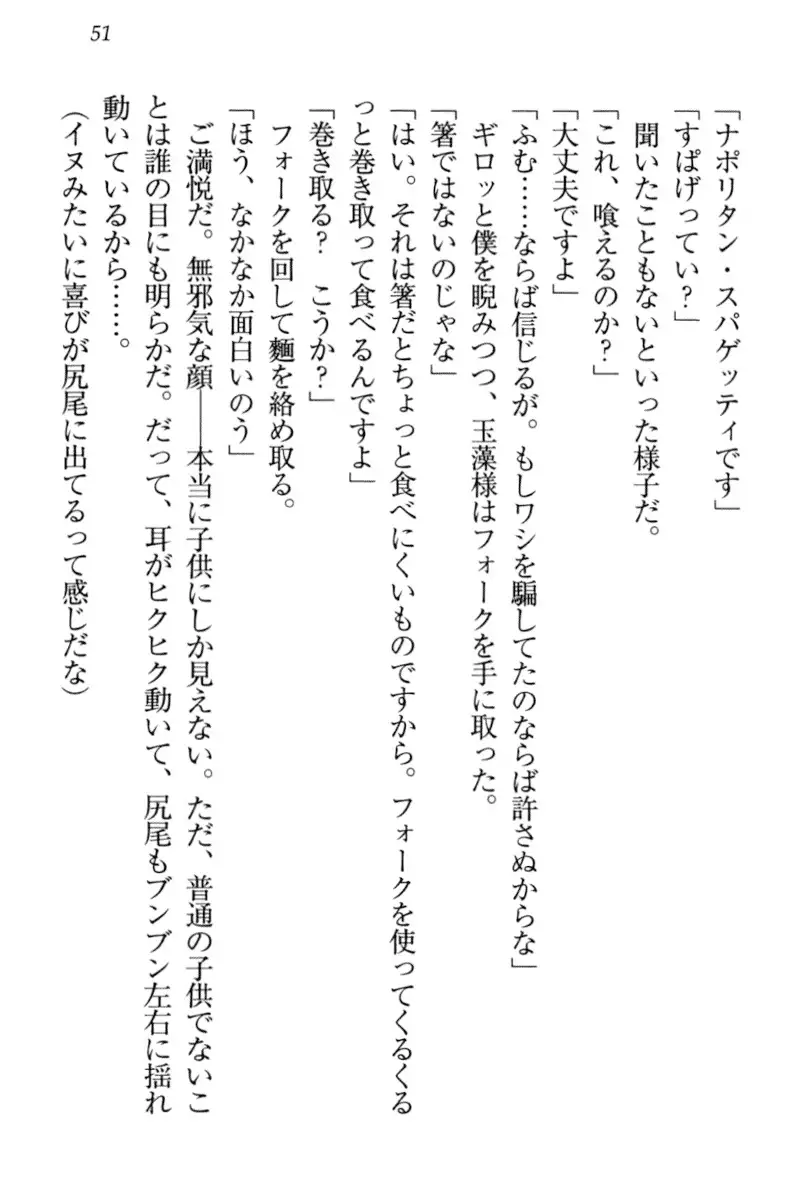 51
「ナポリタン・スパゲッティです」
「すぱげってぃ？」
聞いたこともないといった様子だ。
「これ、喰えるのか？」
「大丈夫ですよ」
「ふむ……ならば信じるが。もしワシを騙してたのならば許さぬからな」
ギロッと僕を睨みつつ、玉藻様はフォークを手に取った。
「箸ではないのじゃな」
「はい。それは箸だとちょっと食べにくいものですから。フォークを使ってくるくる
っと巻き取って食べるんですよ」
「巻き取る？　こうか？」
フォークを回して麵を絡め取る。
「ほう、なかなか面白いのう」
ご満悦だ。無邪気な顔――本当に子供にしか見えない。ただ、普通の子供でないこ
とは誰の目にも明らかだ。だって、耳がヒクヒク動いて、尻尾もブンブン左右に揺れ
動いているから……。
（イヌみたいに喜びが尻尾に出てるって感じだな）